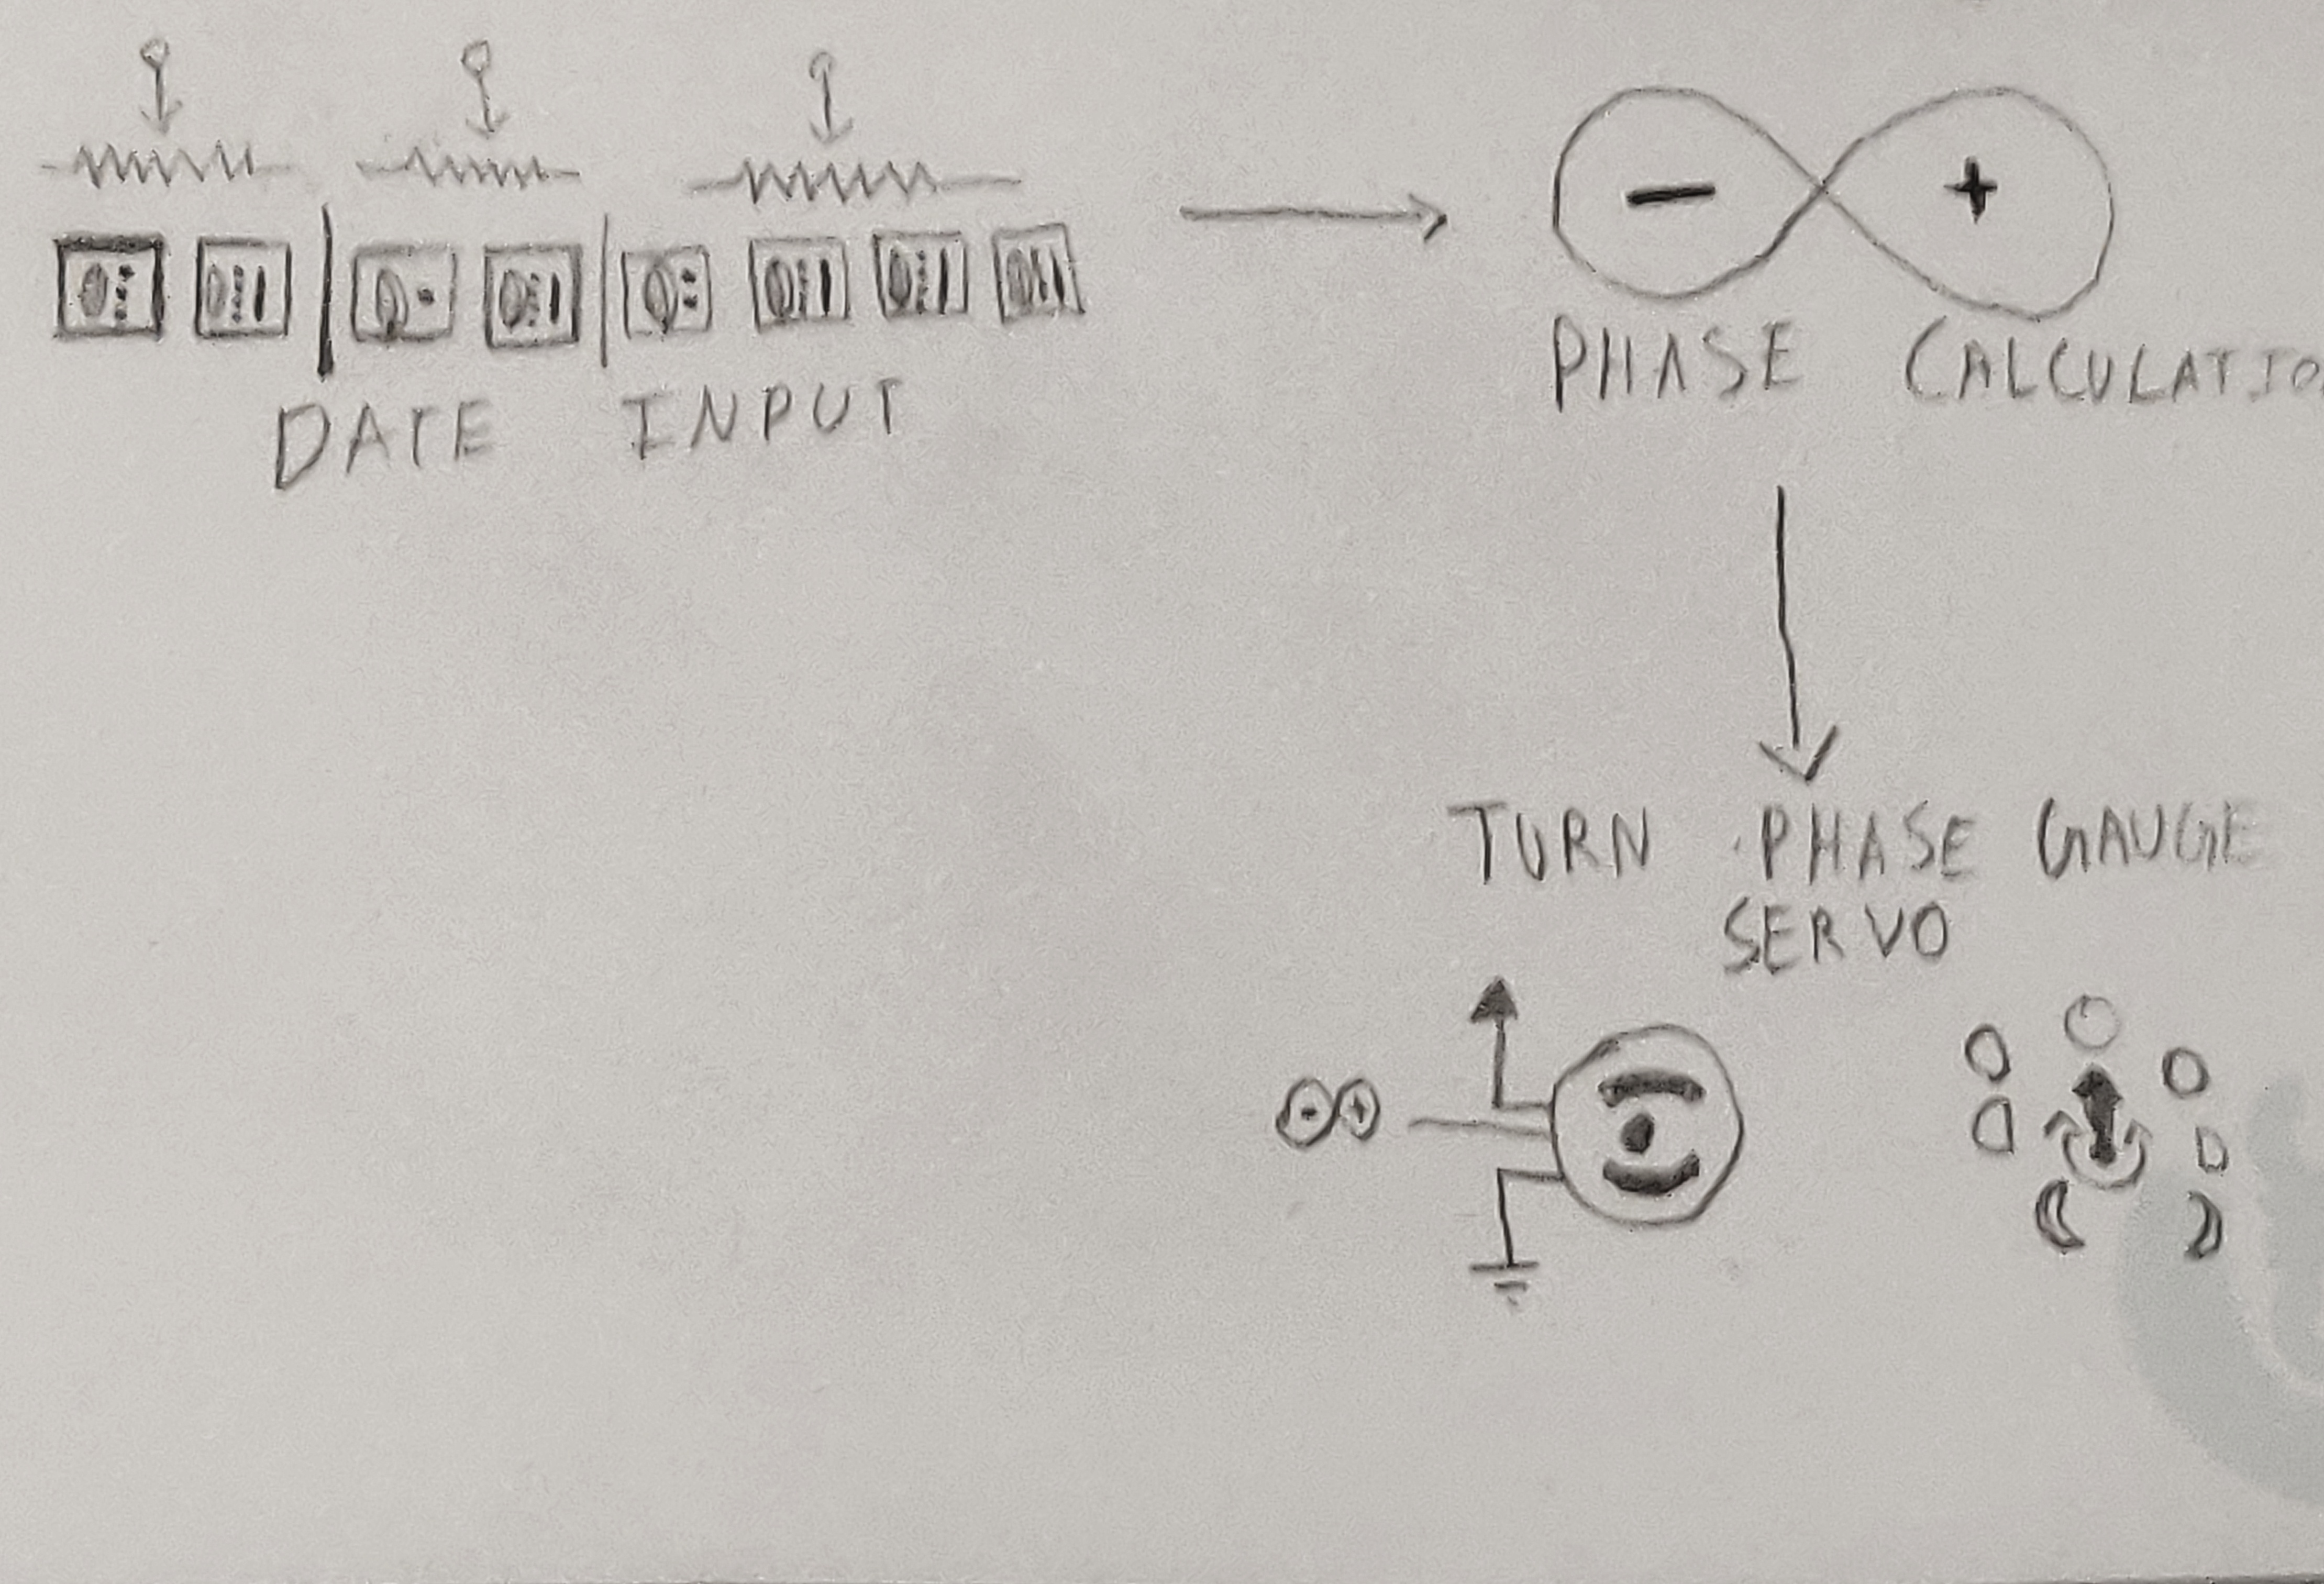 DATE INPUT
PHASE CALCULATIO
TURN PHASE GAUGE
SERVO